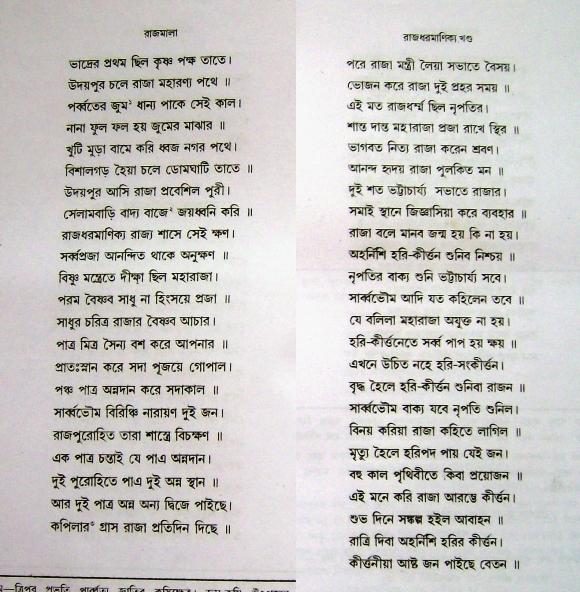 রাজমালা
ভাদ্রের প্রথম ছিল কৃষ্ণ পক্ষ তাতে।
উদয়পুর চলে রাজা মহারণ্য পথে ॥
পর্ব্বতের জুম² ধান্য পাকে সেই কাল।
নানা ফুল ফল হয় জুমের মাঝার ॥
খুটি মুড়া বামে করি ধ্বজ নগর পথে।
বিশালগড় হৈয়া চলে ডোমঘাটি তাতে ॥
উদয়পুর আসি রাজা প্রবেশিল পুরী।
সেলামবাড়ি বাদ্য বাজে² জয়ধ্বনি করি ॥
রাজধরমাণিক্য রাজ্য শাসে সেই ক্ষণ।
সর্ব্বপ্রজা আনন্দিত থাকে অনুক্ষণ ॥
বিষ্ণু মন্ত্রেতে দীক্ষা ছিল মহারাজা।
পরম বৈষ্ণব সাধু না হিংসয়ে প্রজা ॥
সাধুর চরিত্র রাজার বৈষ্ণব আচার।
পাত্র মিত্র সৈন্য বশ করে আপনার ॥
প্রাতঃস্নান করে সদা পূজয়ে গোপাল।
পঞ্চ পাত্র অন্নদান করে সদাকাল ॥
সার্ব্বভৌম বিরিঞ্চি নারায়ণ দুই জন।
রাজপুরোহিত তারা শাস্ত্রে বিচক্ষণ ॥
এক পাত্র চন্তাই যে পাএ অন্নদান।
দুই পুরোহিতে পাএ দুই অন্ন স্থান ॥
আর দুই পাত্র অন্ন অন্য দ্বিজে পাইছে।
কপিলার³ গ্রাস রাজা প্রতিদিন দিছে ॥
রাজধরমাণিক্য খণ্ড
পরে রাজা মন্ত্রী লৈয়া সভাতে বৈসয়।
ভোজন করে রাজা দুই প্রহর সময় ॥
এই মত রাজধর্ম্ম ছিল নৃপতির।
শান্ত দান্ত মহারাজা প্রজা রাখে স্থির ॥
ভাগবত নিত্য রাজা করেন শ্রবণ।
আনন্দ হৃদয় রাজা পুলকিত মন ॥
দুই শত ভট্টাচার্য্য সভাতে রাজার।
সমাই স্থানে জিজ্ঞাসিয়া করে ব্যবহার ॥
রাজা বলে মানব জন্ম হয় কি না হয়।
অহর্নিশি হরি-কীর্ত্তন শুনিব নিশ্চয় ॥
নৃপতির বাক্য শুনি ভট্টাচার্য্য সবে।
সার্ব্বভৌম আদি যত কহিলেন তবে ॥
যে বলিলা মহারাজা অযুক্ত না হয়।
হরি-কীর্ত্তনেতে সর্ব্ব পাপ হয় ক্ষয় ॥
এখনে উচিত নহে হরি-সংকীর্ত্তন।
বৃদ্ধ হৈলে হরি-কীর্ত্তন শুনিবা রাজন ॥
সার্ব্বভৌম বাক্য যবে নৃপতি শুনিল।
বিনয় করিয়া রাজা কহিতে লাগিল ॥
মৃত্যু হৈলে হরিপদ পায় যেই জন।
বহু কাল পৃথিবীতে কিবা প্রয়োজন ॥
এই মনে করি রাজা আরম্ভে কীর্ত্তন।
শুভ দিনে সঙ্কল্প হইল আবাহন ॥
রাত্রি দিবা অহর্নিশি হরির কীর্ত্তন।
কীর্ত্তনীয়া আষ্ট জন পাইছে বেতন ॥